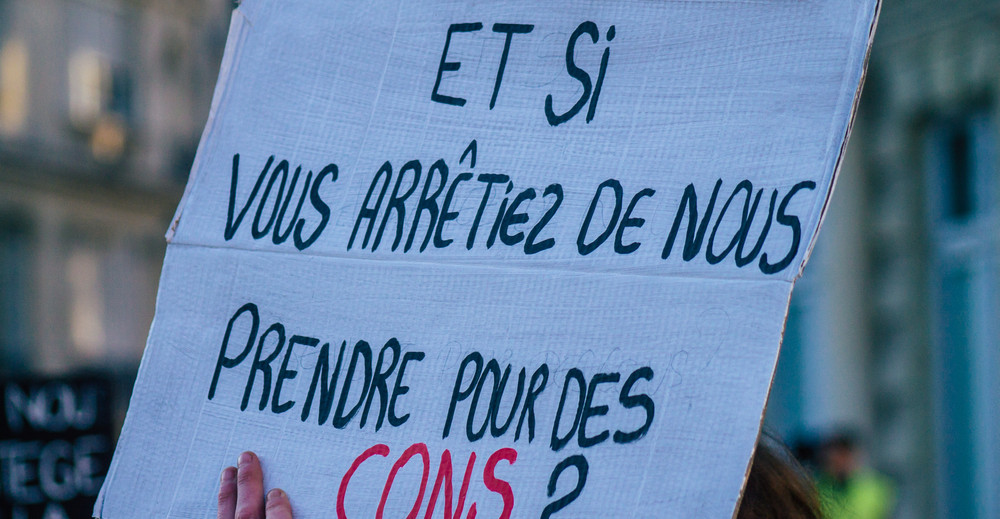 ET Si
VOUS ARRÊTiEZ DE NOUS
PRENDRE POUR DES
CONS ?
NOU
TEGE